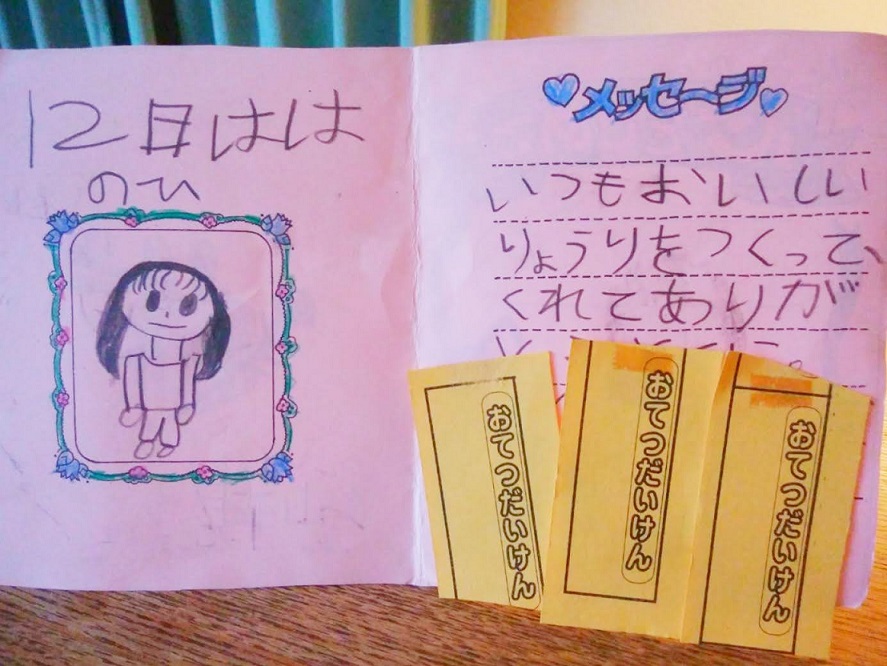 12日はは
のひ
メッセージ
いつもおいしい
りょうりをつくって、
くれてありが
おてつだいけん
おてつだいけん
おてつだいけん